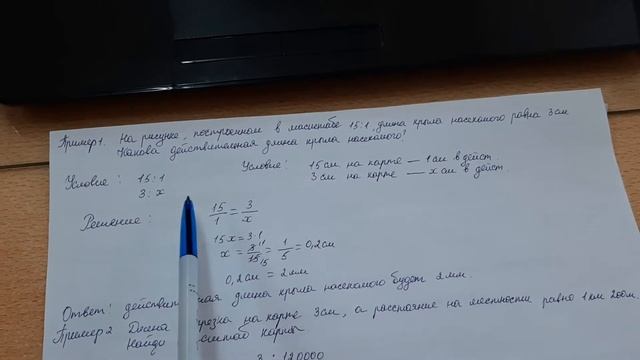 Пример 1. На рисунке, построенном в масштабе 15:1, длина крыла насекомого равна 3 см
Какова действительная длина крыла насекомого?
Условие: 15:1
3:x
Условие: 15 см на карте — 1 см в дейст.
3 см на карте — x см в дейст.
Решение: 15/1 = 3/x
15x = 3·1
x = 3·1/15 = 1/5 = 0,2 см
0,2 см = 2 мм
Ответ: действи ная длина крыла насекомого будет 2 мм.
Пример 2 Длина резка на карте 3 см, а расстояние на местности равно 1 км 200 м.
Найди масштаб карты
3 : 120000